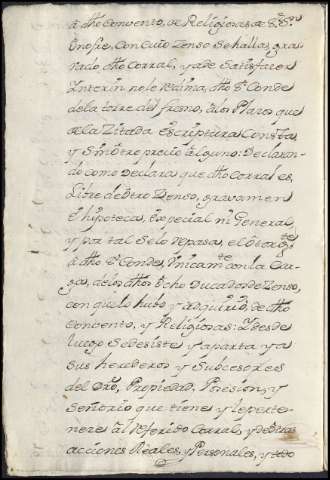 á dho Convento, de Religiosas de Sn
Onofre, con cuio Zenso se halla, gra
vado dho Corral, y a de Satisfacer
Interin no le redima, dho Sr Conde
de la torre del fresno, a los Plazos que
de la Zitada Escriptura Consta,
y Sin otro precio alguno: Declaran
do como Declara que dho Corral es,
Libre de otro Zenso, gravamen
é hipoteca, Especial ni General,
y por tal Se lo traspasa, el otorgte
á dho Sr Conde, Unicamte con la Car
ga, de los dhos Ocho Ducados de Zenso,
con que lo hubo y adquirió, de dho
Convento, y Religiosas: I desde
luego Se desiste y aparta y a
sus herederos y Subcesores
del Dro, Propiedad, Posesion, y
Señorio que tiene y le perte-
nece al referido Corral, y de otras
acciones Reales, y Personales, y todo